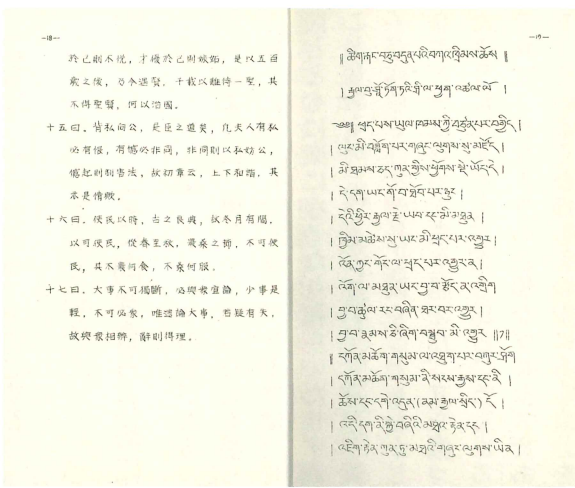 —18—
於己則不悅，才優於己則嫉妬，是以五百
歲之後，乃今遇賢，千載以難待一聖，其
不得聖賢，何以治國。
十五曰，背私向公，是臣之道矣，凡夫人有私
必有恨，有憾必非同，非同則以私妨公，
憾起則制害法，故初章云，上下和諧，其
亦是情歟。
十六曰，使民以時，古之良典，故冬月有間，
以可使民，從春至秋，農桑之節，不可使
民，其不農何食，不桑何服。
十七曰，大事不可獨斷，必與衆宜論，少事是
輕，不可必衆，唯逮論大事，若疑有失，
故與衆相辨，辭則得理。
—19—
༎ ཚིག་རྐང་བཅུ་བདུན་པའི་བཀའ་ཁྲིམས་ཆོས ༎
། རྒྱལ་བུ་ཤོ་ཏོག་ཏའི་ ལ་ཕྱག་འཚལ་ལོ །
༄༅༎ ཕྲད་པས་ཡུལ་ཁམས་ཀྱི་བཙུན་པར་བགྱིད །
། ལུང་མི་བཀློག་པར་གཞུང་ལུགས་སུ་མཛོད །
། མི་ཐམས་ཅད་ཀུན་གྱིས་ཕྱོགས་སྡེ་ཡོད་དེ །
། དེ་དག་ཡང་ གོ་བ་ཐོབ་པར་ཉུང །
། དེའི་ཕྱིར་རྒྱལ་རྗེ་ཡབ་དང་མི་མཐུན །
། ཁྱིམ་མཚེས་སུ་ཡང་མི་ཕྲད་པར་འགྱུར །
། འོན་ཀྱང་གོང་ལ་ཕྲད་པར་འགྱུར་ན །
། འོག་ལ་མཐུན་ཡང་བྱ་བ་རྩོད་ན་འགྲིག
། བྱ་བ་ཚུལ་རང་བཞིན་ཐར་བར་འགྱུར །
། བྱ་བ་རྣམས་ཅི་ཞིག་བསྒྲུབ་མི་འགྱུར ༎༡༎
༎ དཀོན་མཆོག་གསུམ་ལ་འཐུག་པར་བཀུར་ཤོག
། དཀོན་མཆོག་གསུམ་ནི་སངས་རྒྱས་དང་ནི །
། ཆོས་དང་དགེ་འདུན་(རྣམ་རྒྱལ་སྤྲིང་) ངོ །
། འདི་དག་ནི་སྐྱེ་བཞིའི་མཐའ་རྟེན་དང །
། འཇིག་རྟེན་ཀུན་ཏུ་མཐའི་གཞུང་ལུགས་ཡིན །